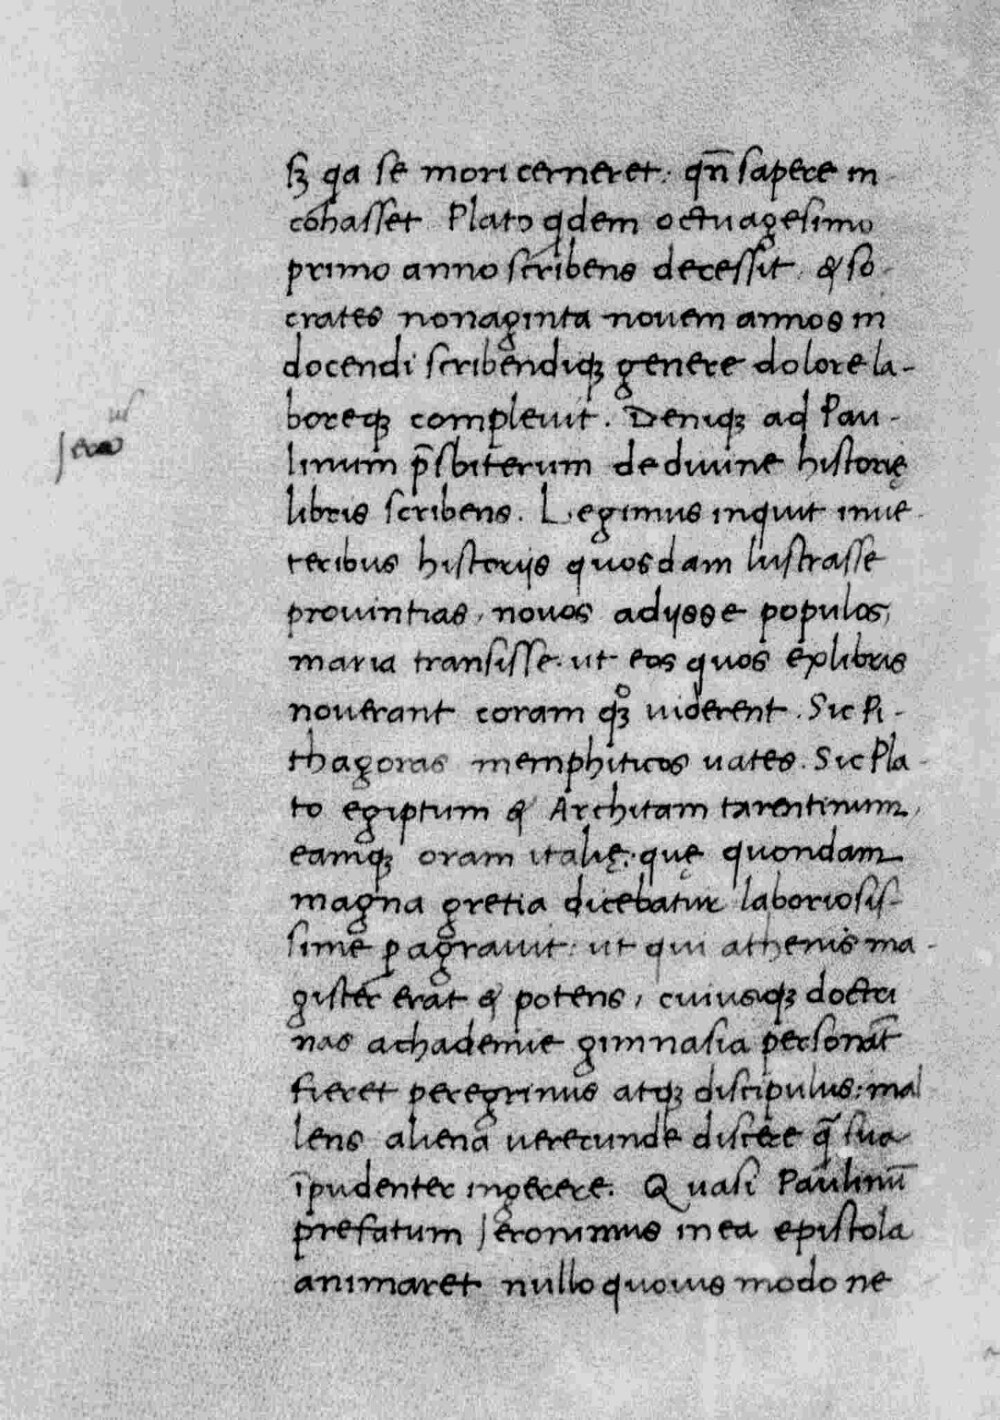 sꝫ qa se mori cerneret. qn̄ sapere in
cohasset Plato qdem octuagesimo
primo anno scribens decessit, & so-
crates nonaginta novem annos in
docendi scribendiqꝫ genere dolore la-
boreqꝫ complevit. Deniqꝫ ad Pau-
linum p̄sbiterum de divine historię
libris scribens. Legimus inquit in ve-
teribus historijs quosdam lustrasse
provintias, novos adijsse populos,
maria transisse. ut eos quos ex libris
noverant coram qꝫ viderent. Sic Pi-
thagoras memphiticos vates. Sic Pla-
to egiptum & Architam tarentinum,
eamqꝫ oram italię. quę quondam
magna gretia dicebatur laboriosis-
sime ꝑagravit. ut qui athenis ma-
gister erat & potens, cuiusqꝫ doctri
nas achademie gimnasia personāt
fieret peregrinus atqꝫ discipulus: mal
lens aliena verecunde discere q̄ sua
īpudenter ingerere. Quasi Paulinū
prefatum Jeronimus in ea epistola
animaret nullo quovis modo ne